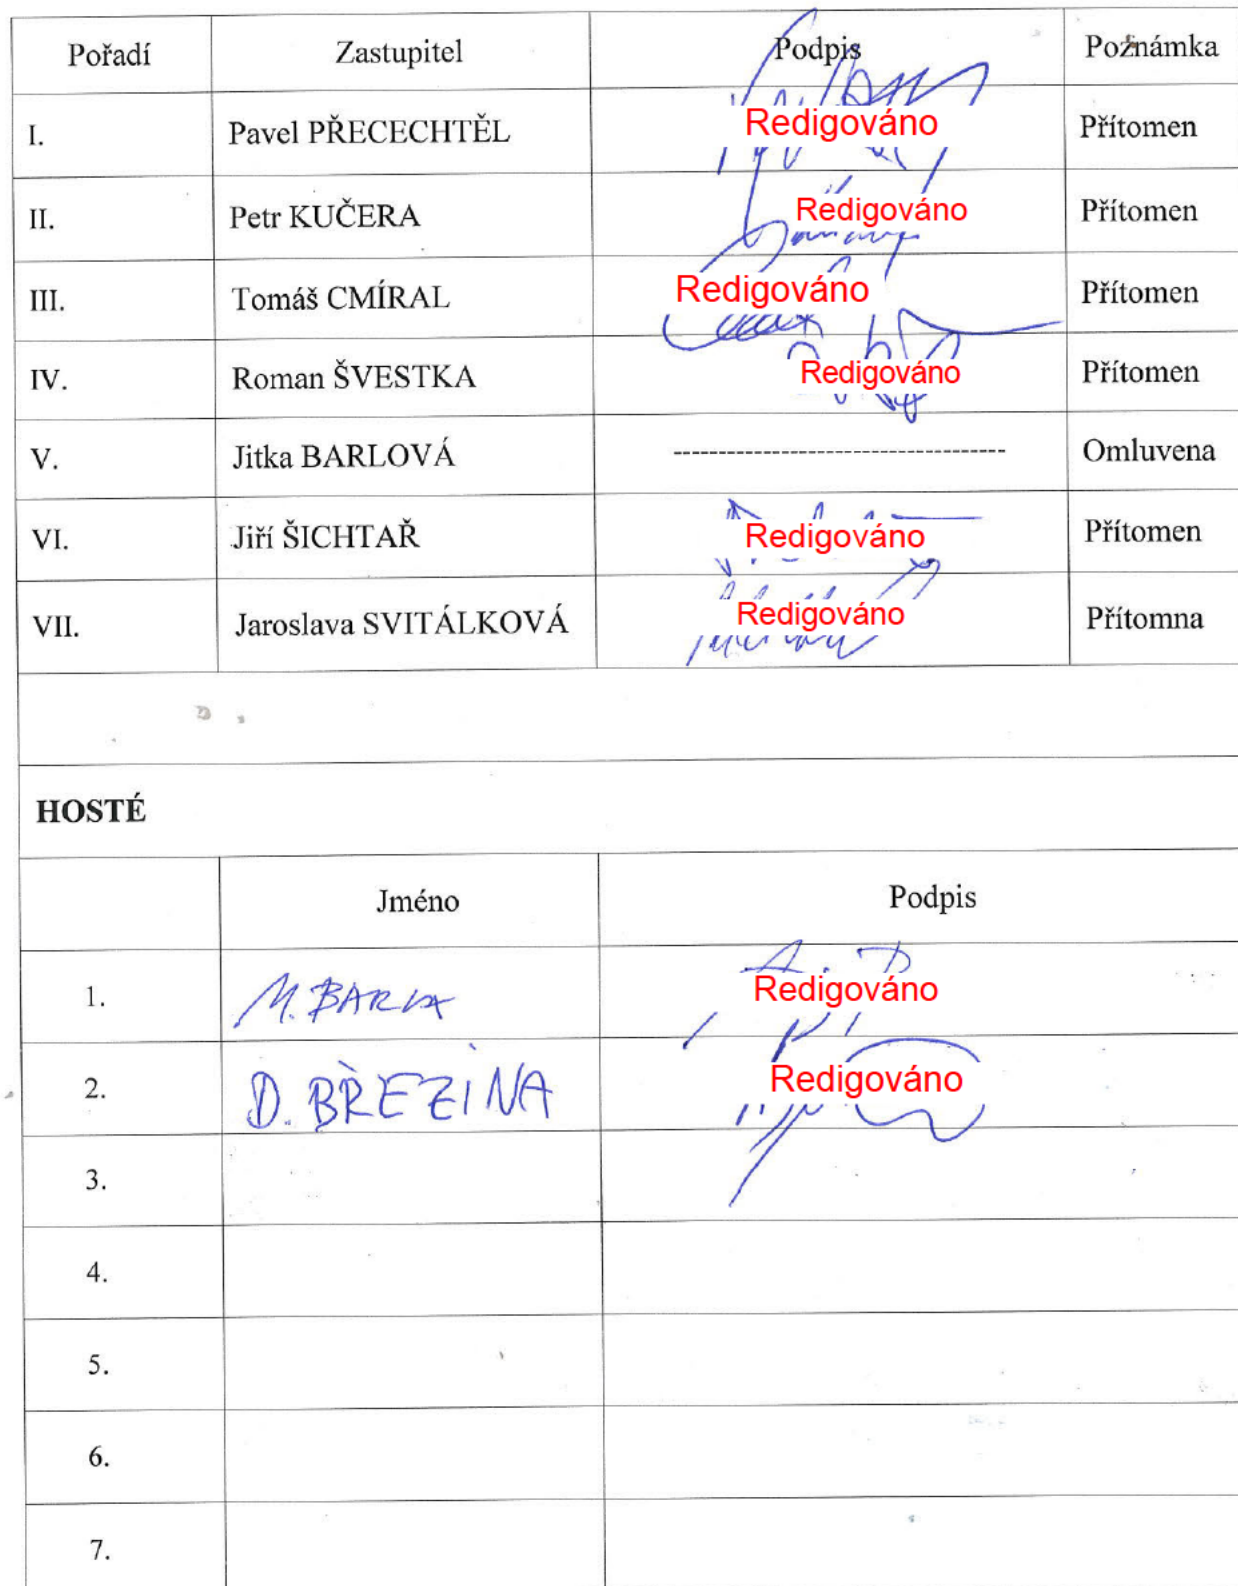 Pořadí Zastupitel Podpis Poznámka
I. Pavel PŘECECHTĚL Redigováno Přítomen
II. Petr KUČERA Redigováno Přítomen
III. Tomáš CMÍRAL Redigováno Přítomen
IV. Roman ŠVESTKA Redigováno Přítomen
V. Jitka BARLOVÁ ------------------------------------- Omluvena
VI. Jiří ŠICHTAŘ Redigováno Přítomen
VII. Jaroslava SVITÁLKOVÁ Redigováno Přítomna
HOSTÉ
Jméno Podpis
1. M. BARLA Redigováno
2. D. BŘEZINA Redigováno
3.
4.
5.
6.
7.